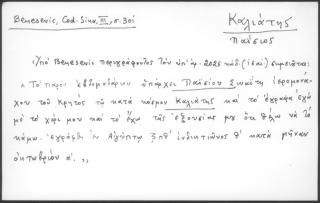 Benesevic, Cod. Sin. III, σ. 301
Καλιάτης
Παΐσιος
Ὑπὸ Benesevic περιγράφοντος τὸν ὑπ' ἀρ. 2026 κώδ. σημειοῦται:
"Τὸ παρὸν ἑβδομαδάριν ὑπάρχει Παϊσίου ἱερομονά-
χου τοῦ Κρητὸς τῷ κατὰ κόσμου Καλιάτης καὶ τὸ ἔγραψα ἐγὼ
μὲ τὸ χέρι μου καὶ τὸ ἔχω τῆς ἐξουσίας μου ὅτι θέλω νὰ τὸ
κάμω. ἐγράφθι ἐν Αἰγύπτῳ ἰνδικτιῶνος θ' κατὰ μῆναν
ὀκτωβρίου α'. "